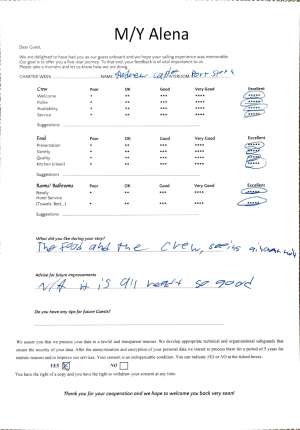 M/Y Alena
Dear Guest,
We are delighted to have had you as our guest onboard and we hope your sailing experience was memorable.
Our goal is to offer you a five star journey. To that end, your feedback is of vital importance to us.
Please take a moment and let us know how we are doing.
CHARTER WEEK NAME Andrew
Crew Poor OK Good Very Good Excellent
Welcome * ** *** **** *****
Polite * ** *** **** *****
Availability * ** *** **** *****
Service * ** *** **** *****
Suggestions
Food Poor OK Good Very Good Excellent
Presentation * ** *** **** *****
Variety * ** *** **** *****
Quality * ** *** **** *****
Kitchen (closed) * ** *** **** *****
Suggestions
Rooms/ Bathrooms Poor OK Good Very Good Excellent
Ready * ** *** **** *****
Hotel Service
(Towels, Bed...) * ** *** **** *****
Suggestions
What did you like during your stay?
The food and the crew, seeing
Advise for future improvements
N/A it is all so good
Do you have any tips for future Guests?
We assure you that we process your data in a lawful and transparent manner. We develop appropriate technical and organizational safeguards that
ensure the security of your data. After the anonymization and encryption of your personal data we intend to process them for a period of 5 years for
statistic reasons and to improve our services. Your consent is an indispensable condition. You can indicate YES or NO at the ticked boxes.
YES NO
You have the right of a copy and you have the right to withdraw your consent at any time.
Thank you for your cooperation and we hope to welcome you back very soon!